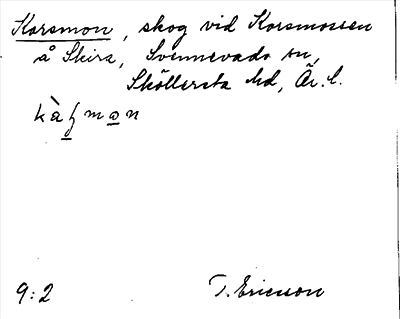 Korsmon, skog vid Korsmossen
å Skira, Svennevads sn,
Sköllersta hd, Ör. l.
9:2 T. Ericsson